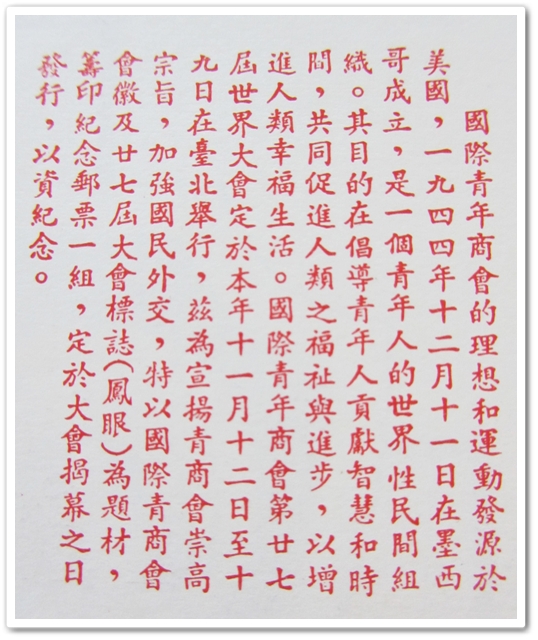 國際青年商會的理想和運動發源於
美國，一九四四年十二月十一日在墨西
哥成立，是一個青年人的世界性民間組
織。其目的在倡導青年人貢獻智慧和時
間，共同促進人類之福祉與進步，以增
進人類幸福生活。國際青年商會第廿七
屆世界大會定於本年十一月十二日至十
九日在臺北舉行，茲為宣揚青商會崇高
宗旨，加強國民外交，特以國際青商會
會徽及廿七屆大會標誌(鳳眼)為題材，
籌印紀念郵票一組，定於大會揭幕之日
發行，以資紀念。